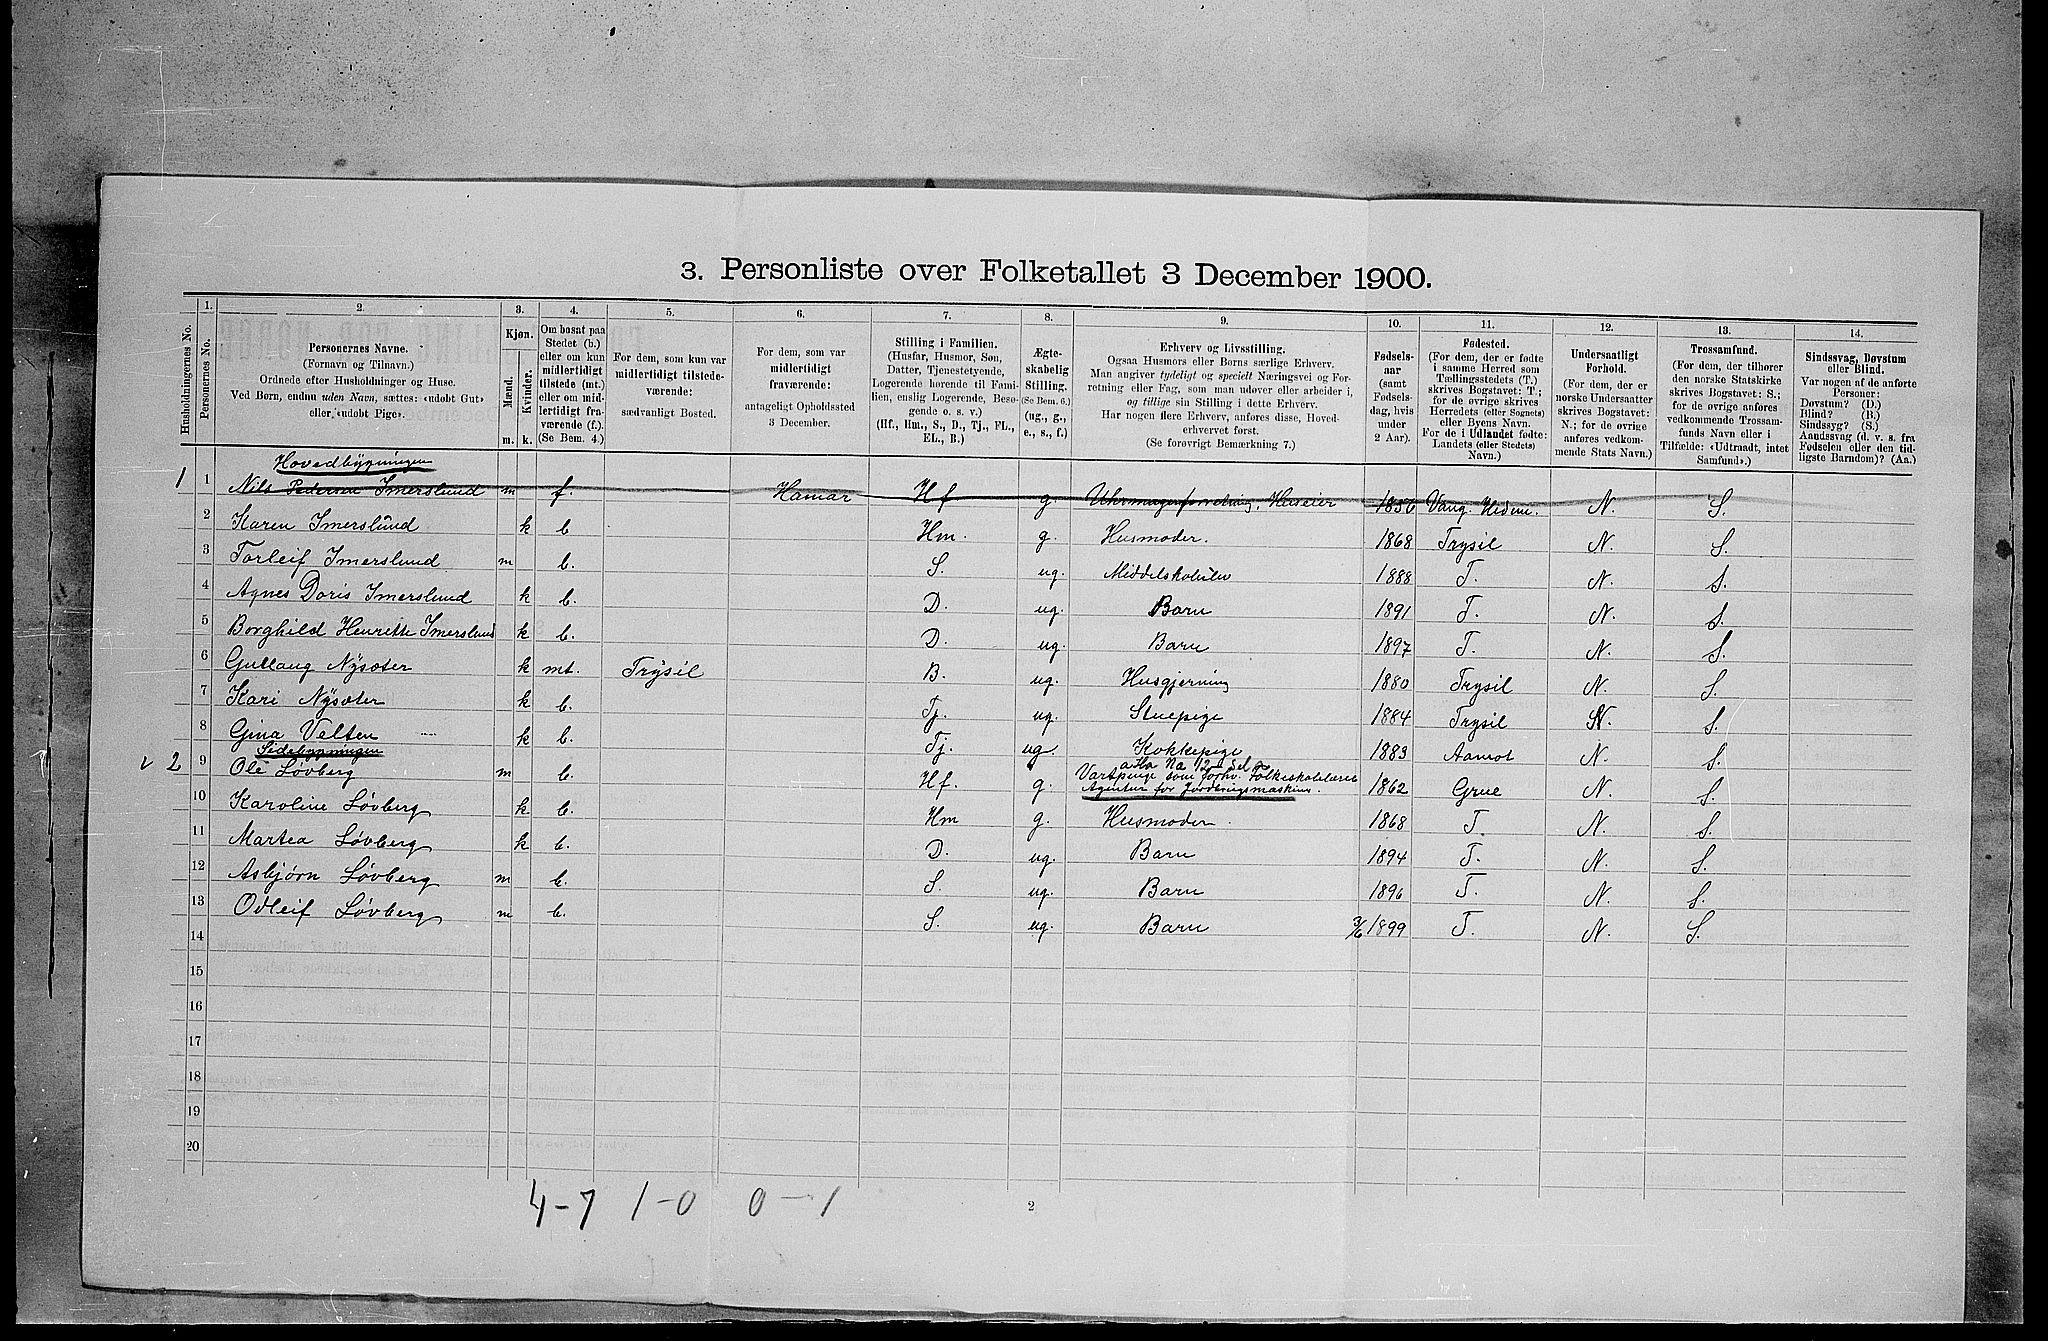 3. Personliste over Folketallet 3 December 1900.
Husholdningernes No.
1.
Personernes No.
2.
Personernes Navne.
(Fornavn og Tilnavn.)
Ordnede efter Husholdninger og Huse.
Ved Børn, endnu uden Navn, sættes: «udøbt Gut»
eller «udøbt Pige».
3.
Kjøn.
Mænd.
Kvinder.
m. k.
4.
Om bosat paa
Stedet (b.)
eller om kun
midlertidigt
tilstede (mt.)
eller om mid-
lertidigt fra-
værende (f.).
(Se Bem. 4.)
5.
For dem, som kun var
midlertidigt tilstede-
værende:
sædvanligt Bosted.
6.
For dem, som var
midlertidigt
fraværende:
antageligt Opholdssted
3 December.
7.
Stilling i Familien.
(Husfar, Husmor, Søn,
Datter, Tjenestetyende,
Logerende hørende til Fami-
lien, enslig Logerende, Besø-
gende o. s. v.)
(Hf., Hm., S., D., Tj., FL.,
EL., B.)
8.
Ægte-
skabelig
Stilling.
(Se Bem. 6.)
(ug., g.,
e., s., f.)
9.
Erhverv og Livsstilling.
Ogsaa Husmors eller Børns særlige Erhverv.
Man angiver tydeligt og specielt Næringsvei og For-
retning eller Fag, som man udøver eller arbeider i,
og tillige sin Stilling i dette Erhverv.
Har nogen flere Erhverv, anføres disse, Hoved-
erhvervet først.
(Se forøvrigt Bemærkning 7.)
10.
Fødsels-
aar
(samt
Fødsels-
dag, hvis
under
2 Aar).
11.
Fødested.
(For dem, der er fødte
i samme Herred som
Tællingsstedets (T.)
skrives Bogstavet: T.;
for de øvrige skrives
Herredets (eller Sognets)
eller Byens Navn.
For de i Udlandet fødte:
Landets (eller Stedets)
Navn.)
12.
Undersaatligt
Forhold.
(For dem, der er
norske Undersaatter
skrives Bogstavet:
N.; for de øvrige
anføres vedkom-
mende Stats Navn.)
13.
Trossamfund.
(For dem, der tilhører
den norske Statskirke
skrives Bogstavet: S.;
for de øvrige anføres
vedkommende Trossam-
funds Navn eller i
Tilfælde: «Udtraadt, intet
Samfund».)
14.
Sindssvag, Døvstum
eller Blind.
Var nogen af de anførte
Personer:
Døvstum? (D.)
Blind? (B.)
Sindssyg? (S.)
Aandssvag (d. v. s. fra
Fødselen eller den tid-
ligste Barndom)? (Aa.)
Hovedbygningen
1 1 Nils Pedersen Imerslund m f. Hamar Hf g. Uhrmagerforretning, Huseier 1856 Vang. Hedm. N. S.
2 Karen Imerslund k b Hm. g. Husmoder. 1868 Trysil N. S.
3 Torleif Imerslund m b. S. ug. Middelskolelev 1888 T. N. S.
4 Agnes Doris Imerslund k b. D. ug. Barn 1891 T. N. S.
5 Borghild Henriette Imerslund k b. D. ug. Barn 1897 T. N. S.
6 Gullaug Nysæter k mt. Trysil B. ug. Husgjerning 1880 Trysil N. S.
7 Kari Nysæter k b. Tj. ug. Stuepige 1884 Trysil N. S.
8 Gina Velten k b. Tj. ug. Kokkepige 1883 Aamot N. S.
Sidebygningen
v 2 9 Ole Løvberg m b. Hf. g. Vartpenge som forhv. Folkeskolelærer 1862 Grue N. S.
Agentur for
10 Karoline Løvberg k b. Hm g. Husmoder. 1868 T. N. S.
11 Martea Løvberg k b. D. ug. Barn 1894 T. N. S.
12 Asbjørn Løvberg m b. S. ug. Barn 1896 T. N. S.
13 Odleif Løvberg m b. S. ug. Barn 3/6 1899 T. N. S.
14
15
16
17
18
19
20
4-7 1-0 0-1
2